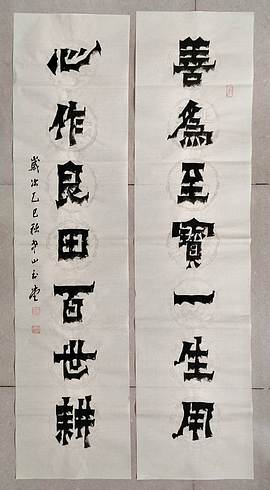 善為至寶一生用
心作良田百世耕
歲次乙巳秋